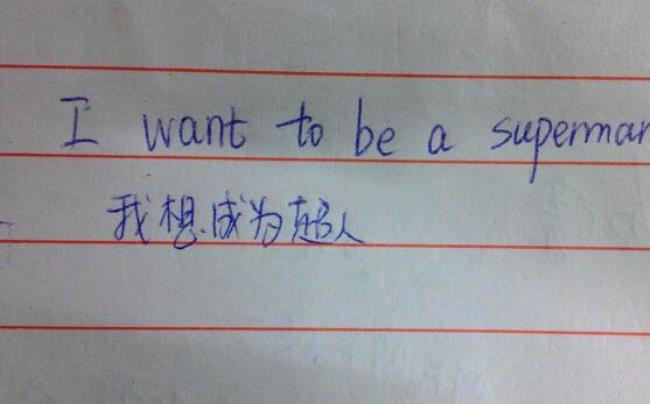 I want to be a superman
我想成为超人